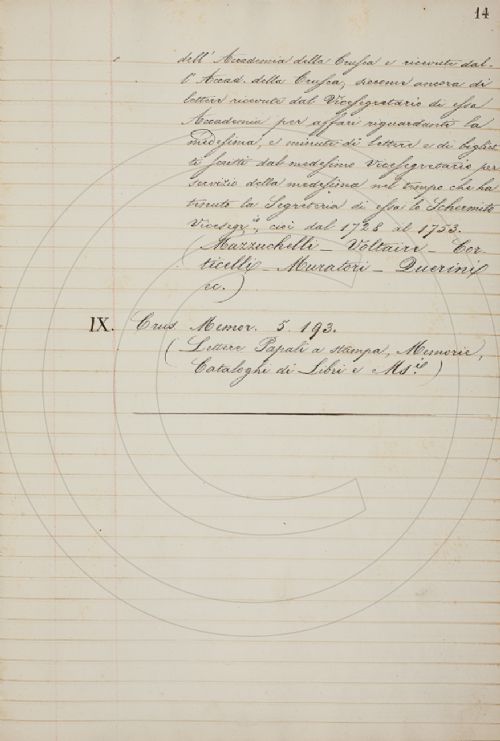 14
dell' Accademia della Crusca e ricevute dal-
l' Accad. della Crusca, siccome ancora di
lettere ricevute dal Vicesegretario di essa
Accademia per affari riguardanti la
medesima, e minute di lettere e di bigliet-
ti scritti dal medesimo Vicesegretario per
servizio della medesima nel tempo che ha
tenuto la Segreteria di essa lo Schermito
Vicesegr.º, cioè dal 1728 al 1753.
(Mazzuchelli - Voltaire - Cor-
ticelli - Muratori - Querini
ec.)
IX. Crus. Memor. 5. 193.
(Lettere Papali a stampa, Memorie,
Cataloghi di Libri e Mss.)